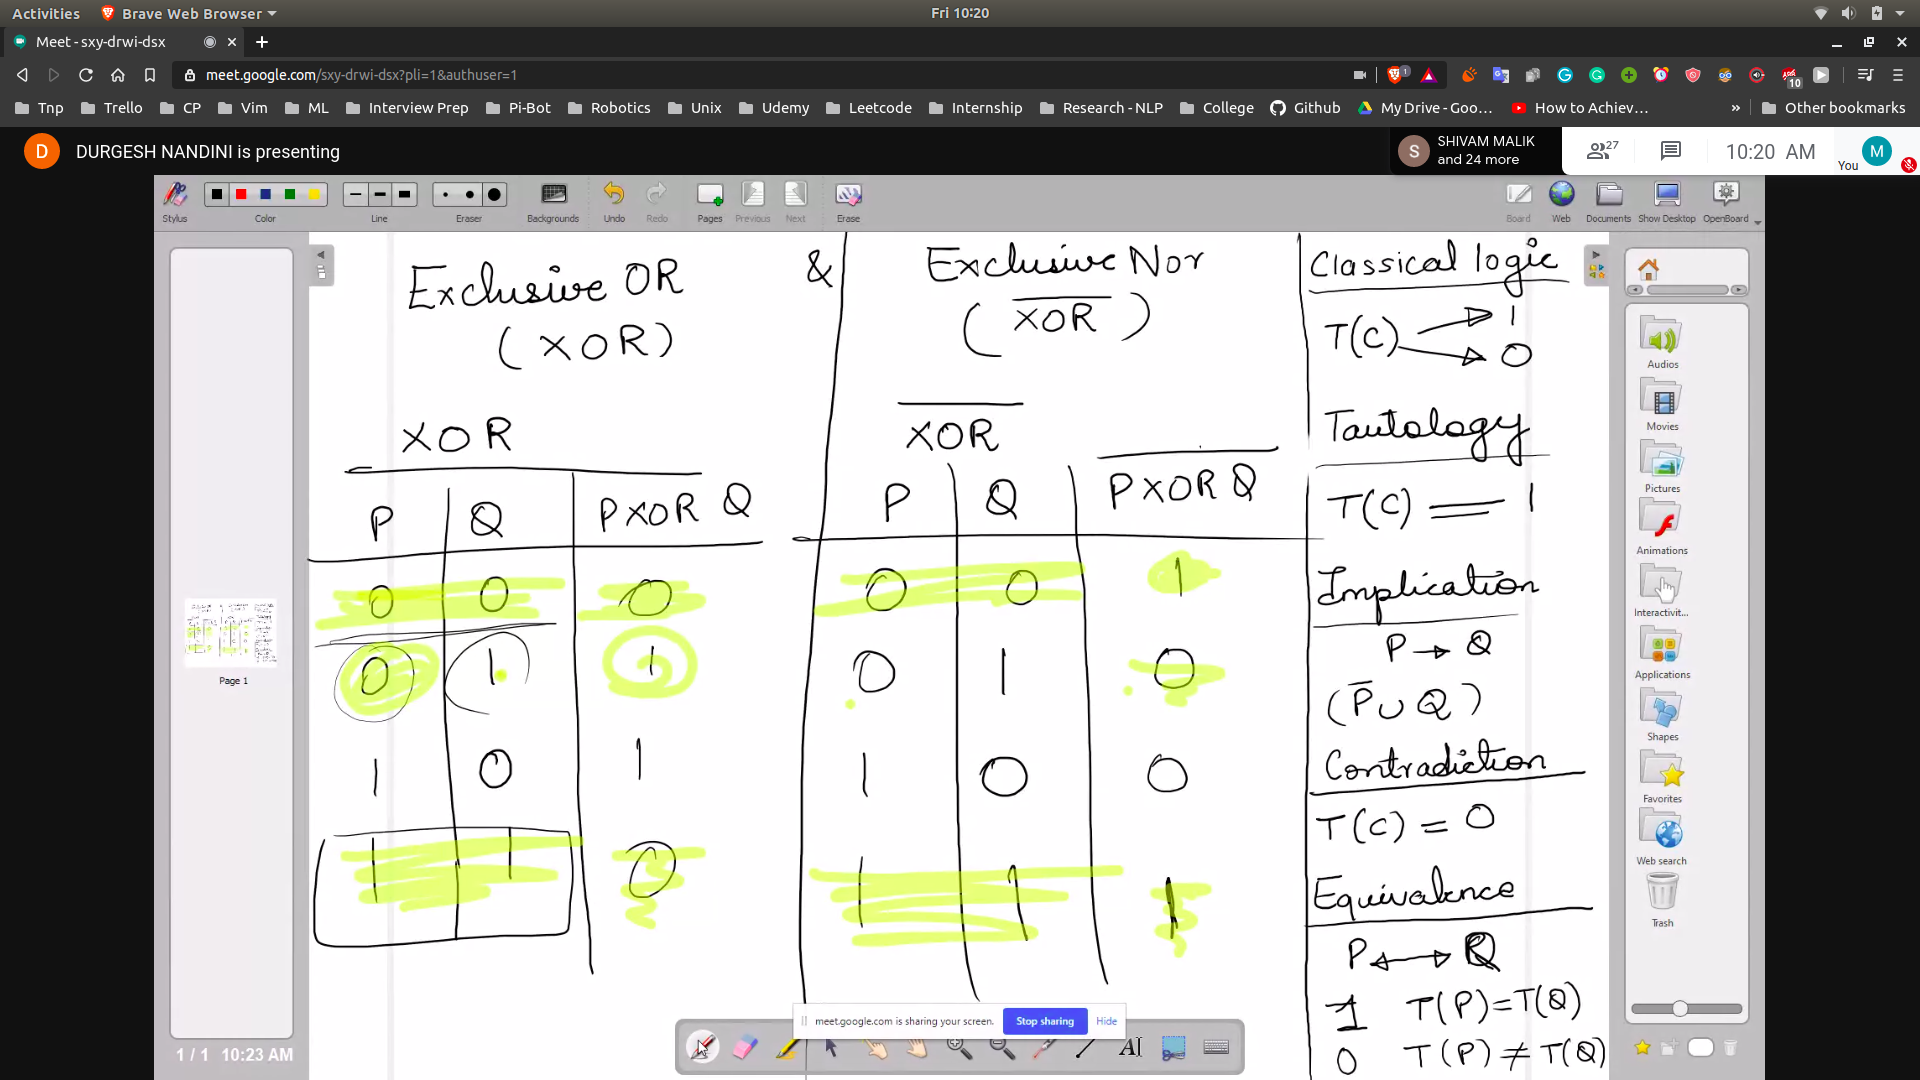 Activities Brave Web Browser Fri 10:20
Meet - sxy-drwi-dsx
meet.google.com/sxy-drwi-dsx?pli=1&authuser=1
1 10
Tnp Trello CP Vim ML Interview Prep Pi-Bot Robotics Unix Udemy Leetcode Internship Research - NLP College Github My Drive - Goo... How to Achiev... » Other bookmarks
D DURGESH NANDINI is presenting
S SHIVAM MALIK
and 24 more
27
10:20 AM
You M
Stylus Color Line Eraser Backgrounds Undo Redo Pages Previous Next Erase
Board Web Documents Show Desktop OpenBoard
Exclusive OR
(XOR)
&
Exclusive Nor
(XOR)
XOR
P Q P XOR Q
0 0 0
0 1 1
1 0 1
1 1 0
XOR
P Q P XOR Q
0 0 1
0 1 0
1 0 0
1 1 1
Classical logic
T(C) 1
0
Tautology
T(C) = 1
Implication
P → Q
(P̅ ∪ Q)
Contradiction
T(C) = 0
Equivalence
P ↔ Q
1 T(P)=T(Q)
0 T(P)≠T(Q)
Audios
Movies
Pictures
Animations
Interactivit...
Applications
Shapes
Favorites
Web search
Trash
Page 1
1 / 1 10:23 AM
meet.google.com is sharing your screen. Stop sharing Hide